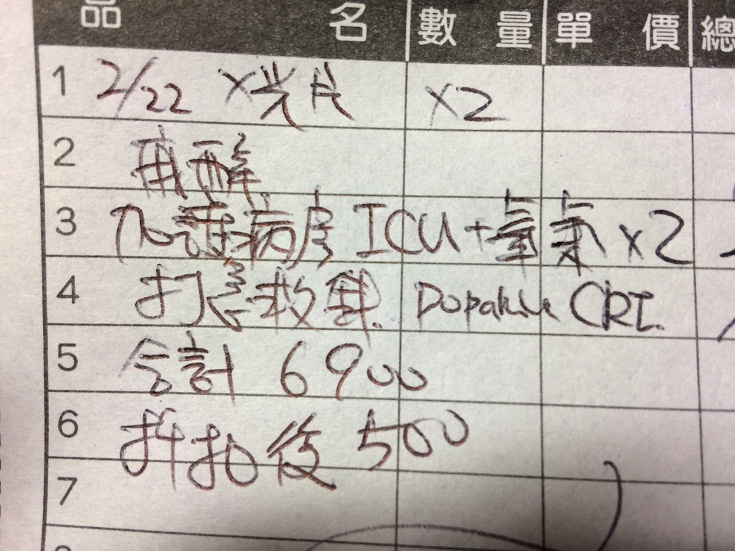 品 名 數 量 單 價 總
1 2/22 X光片 X2
2 麻醉
3 加護病房 ICU+氧氣 X2
4 打急救針 Dopamine CRI
5 合計 6900
6 折扣後 500
7